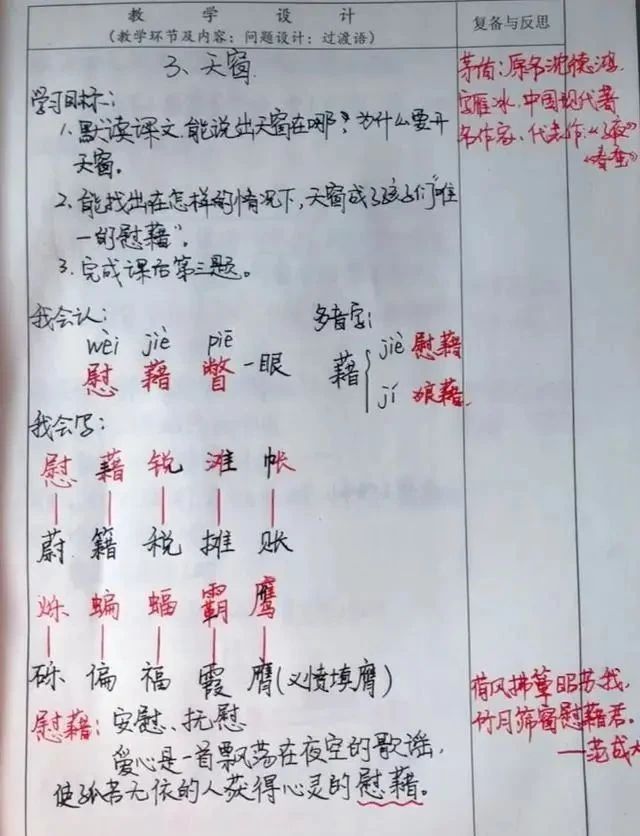 教 学 设 计
(教学环节及内容：问题设计：过渡语)
复备与反思
3、天窗
学习目标：
1. 默读课文,能说出天窗在哪？为什么要开
天窗。
2. 能找出在怎样的情况下,天窗成了孩子们"唯
一的慰藉"。
3. 完成课后第三题。
茅盾：原名沈德鸿,
字雁冰.中国现代著
名作家、代表作：《子夜》
《春蚕》
我会认：
wèi jiè piē
慰 藉 瞥 一眼
多音字：
藉
jiè 慰藉
jí 狼藉
我会写：
慰 藉 锐 滩 帐
蔚 籍 税 摊 账
烁 蝙 蝠 霸 鹰
砾 偏 福 霞 膺(义愤填膺)
慰藉：安慰、抚慰
爱心是一首飘荡在夜空的歌谣,
使孤苦无依的人获得心灵的慰藉。
荷风拂簟昭苏我,
竹月筛窗慰藉君。
——范成大